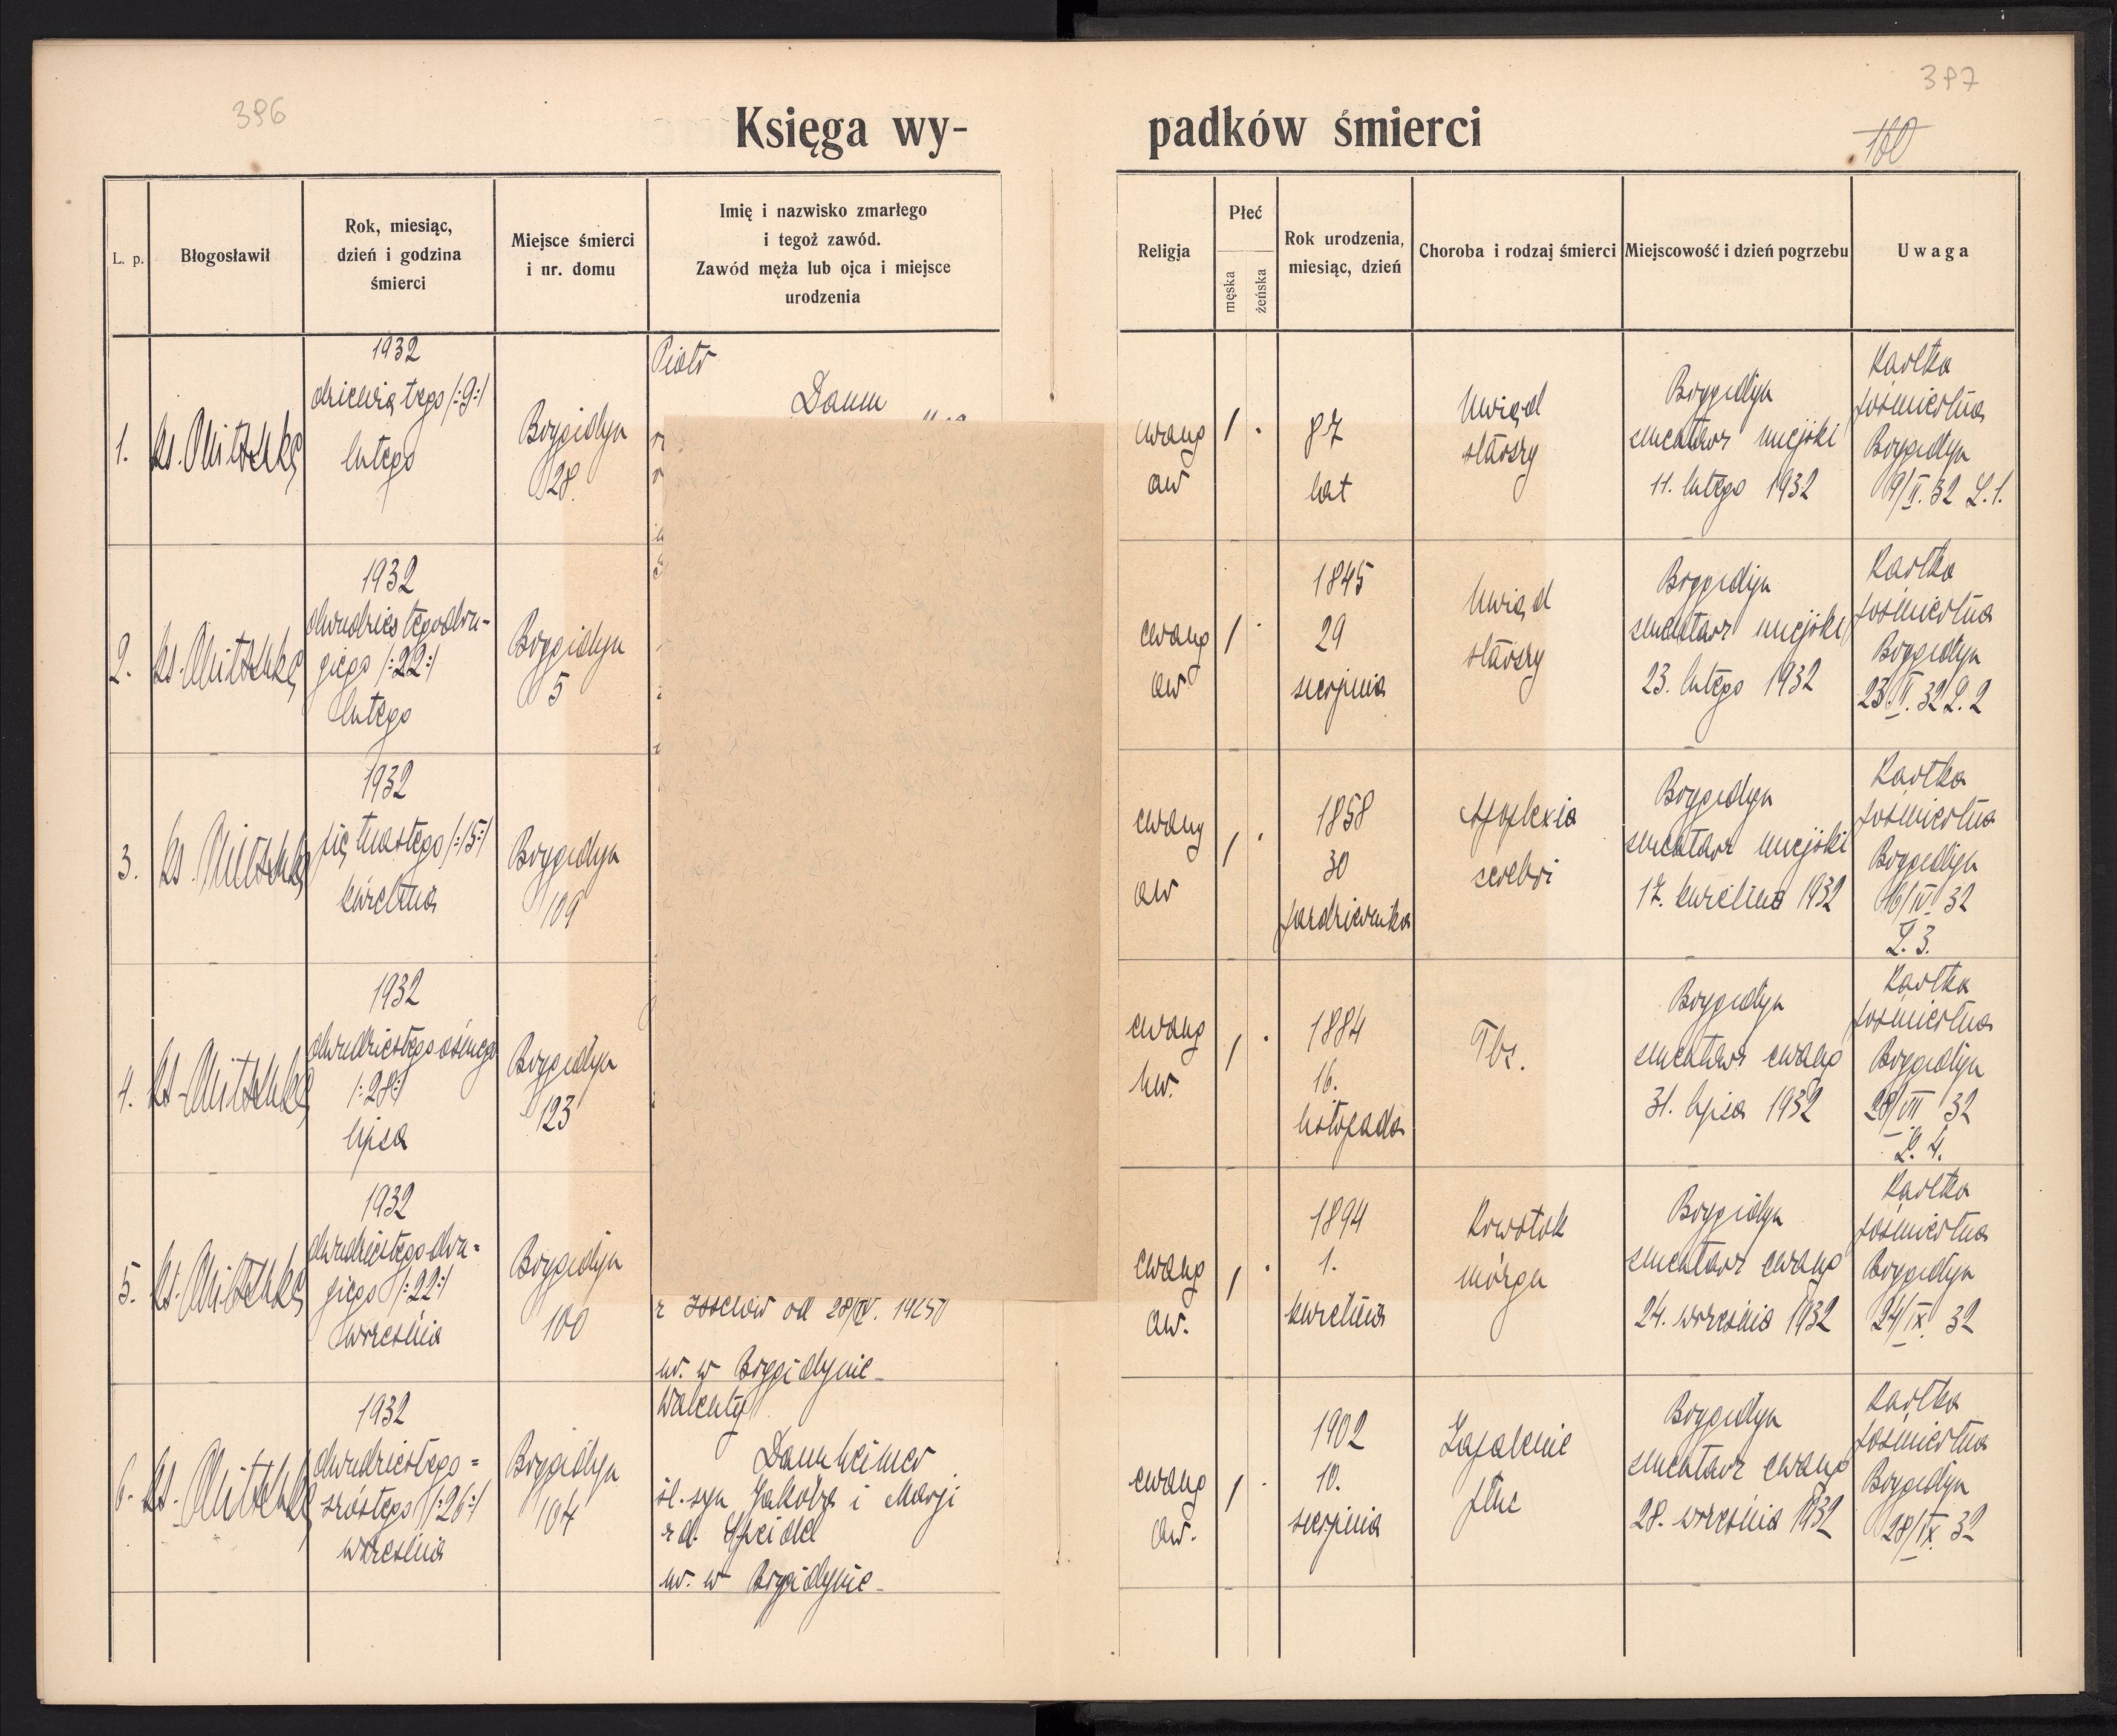 396
397
Księga wy-
padków śmierci
160
L. p.
Błogosławił
Rok, miesiąc,
dzień i godzina
śmierci
Miejsce śmierci
i nr. domu
Imię i nazwisko zmarłego
i tegoż zawód.
Zawód męża lub ojca i miejsce
urodzenia
Religja
Płeć
męska
żeńska
Rok urodzenia,
miesiąc, dzień
Choroba i rodzaj śmierci
Miejscowość i dzień pogrzebu
Uwaga
1.
ks. Mitschke
1932
dziewiątego /:9:/
lutego
Brygidyn
28.
Piotr
Daum
ewang
aw
87
lat
Uwiąd
starszy
Brygidyn
smentarz miejski
11. lutego 1932
Kartka
pośmiertna
Brygidyn
9/II. 32 L. 1.
2.
ks. Mitschke
1932
dwudziestego dru-
giego /:22:/
lutego
Brygidyn
5
ewang
aw
1845
29
sierpnia
Uwiąd
starszy
Brygidyn
smentarz miejski
23. lutego 1932
Kartka
pośmiertna
Brygidyn
23/II. 32 L. 2
3.
ks. Mitschke
1932
piętnastego /:15:/
kwietnia
Brygidyn
109
ewang
aw
1858
30
października
Apoplexia
cerebri
Brygidyn
smentarz miejski
17. kwietnia 1932
Kartka
pośmiertna
Brygidyn
16/IV. 32
L. 3.
4.
ks. Mitschke
1932
dwudziestego ósmego
/:28:/
lipca
Brygidyn
123
ewang
hw.
1884
16.
listopada
Tbc.
Brygidyn
smentarz ewang
31. lipca 1932
Kartka
pośmiertna
Brygidyn
28/VII 32
L. 4.
5.
ks. Mitschke
1932
dwudziestego dru=
giego /:22:/
września
Brygidyn
100
z Josefów od 28/IV. 1925
ur. w Brygidynie
ewang
aw.
1894
1.
kwietnia
Krwotok
mózgu
Brygidyn
smentarz ewang
24. września 1932
Kartka
pośmiertna
Brygidyn
24/IX 32
6.
ks. Mitschke
1932
dwudziestego=
szóstego /:26:/
września
Brygidyn
104
Walenty
Daumheimer
śl. syn Jakóba i Marji
zd. Speidel
ur. w Brygidynie
ewang
aw.
1902
10.
sierpnia
Zapalenie
płuc
Brygidyn
smentarz ewang
28. września 1932
Kartka
pośmiertna
Brygidyn
28/IX 32